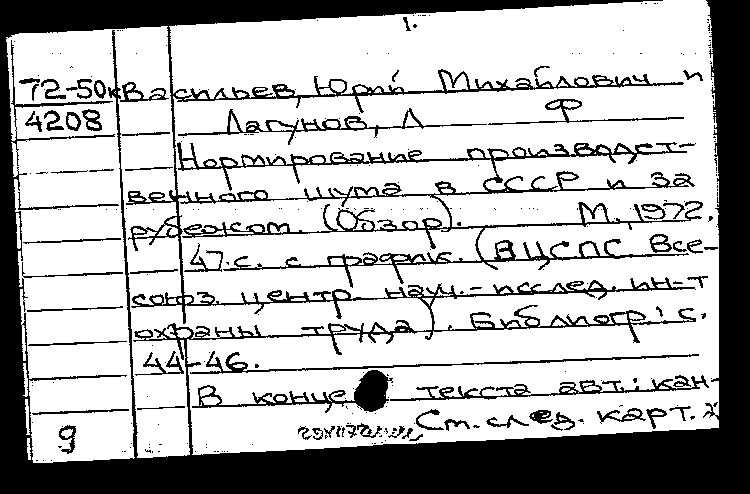 1.
72-50к Васильев, Юрий Михайлович и
4208 Лагунов, Л Ф
Нормирование производст-
венного шума в СССР и за
рубежом. (Обзор). М., 1972.
47.с. с график. (ВЦСПС Все-
союз. центр. науч.-исслед. ин-т
охраны труда). Библиогр.: с.
44-46.
В конце текста авт.: кан-
См. след. карт.
9